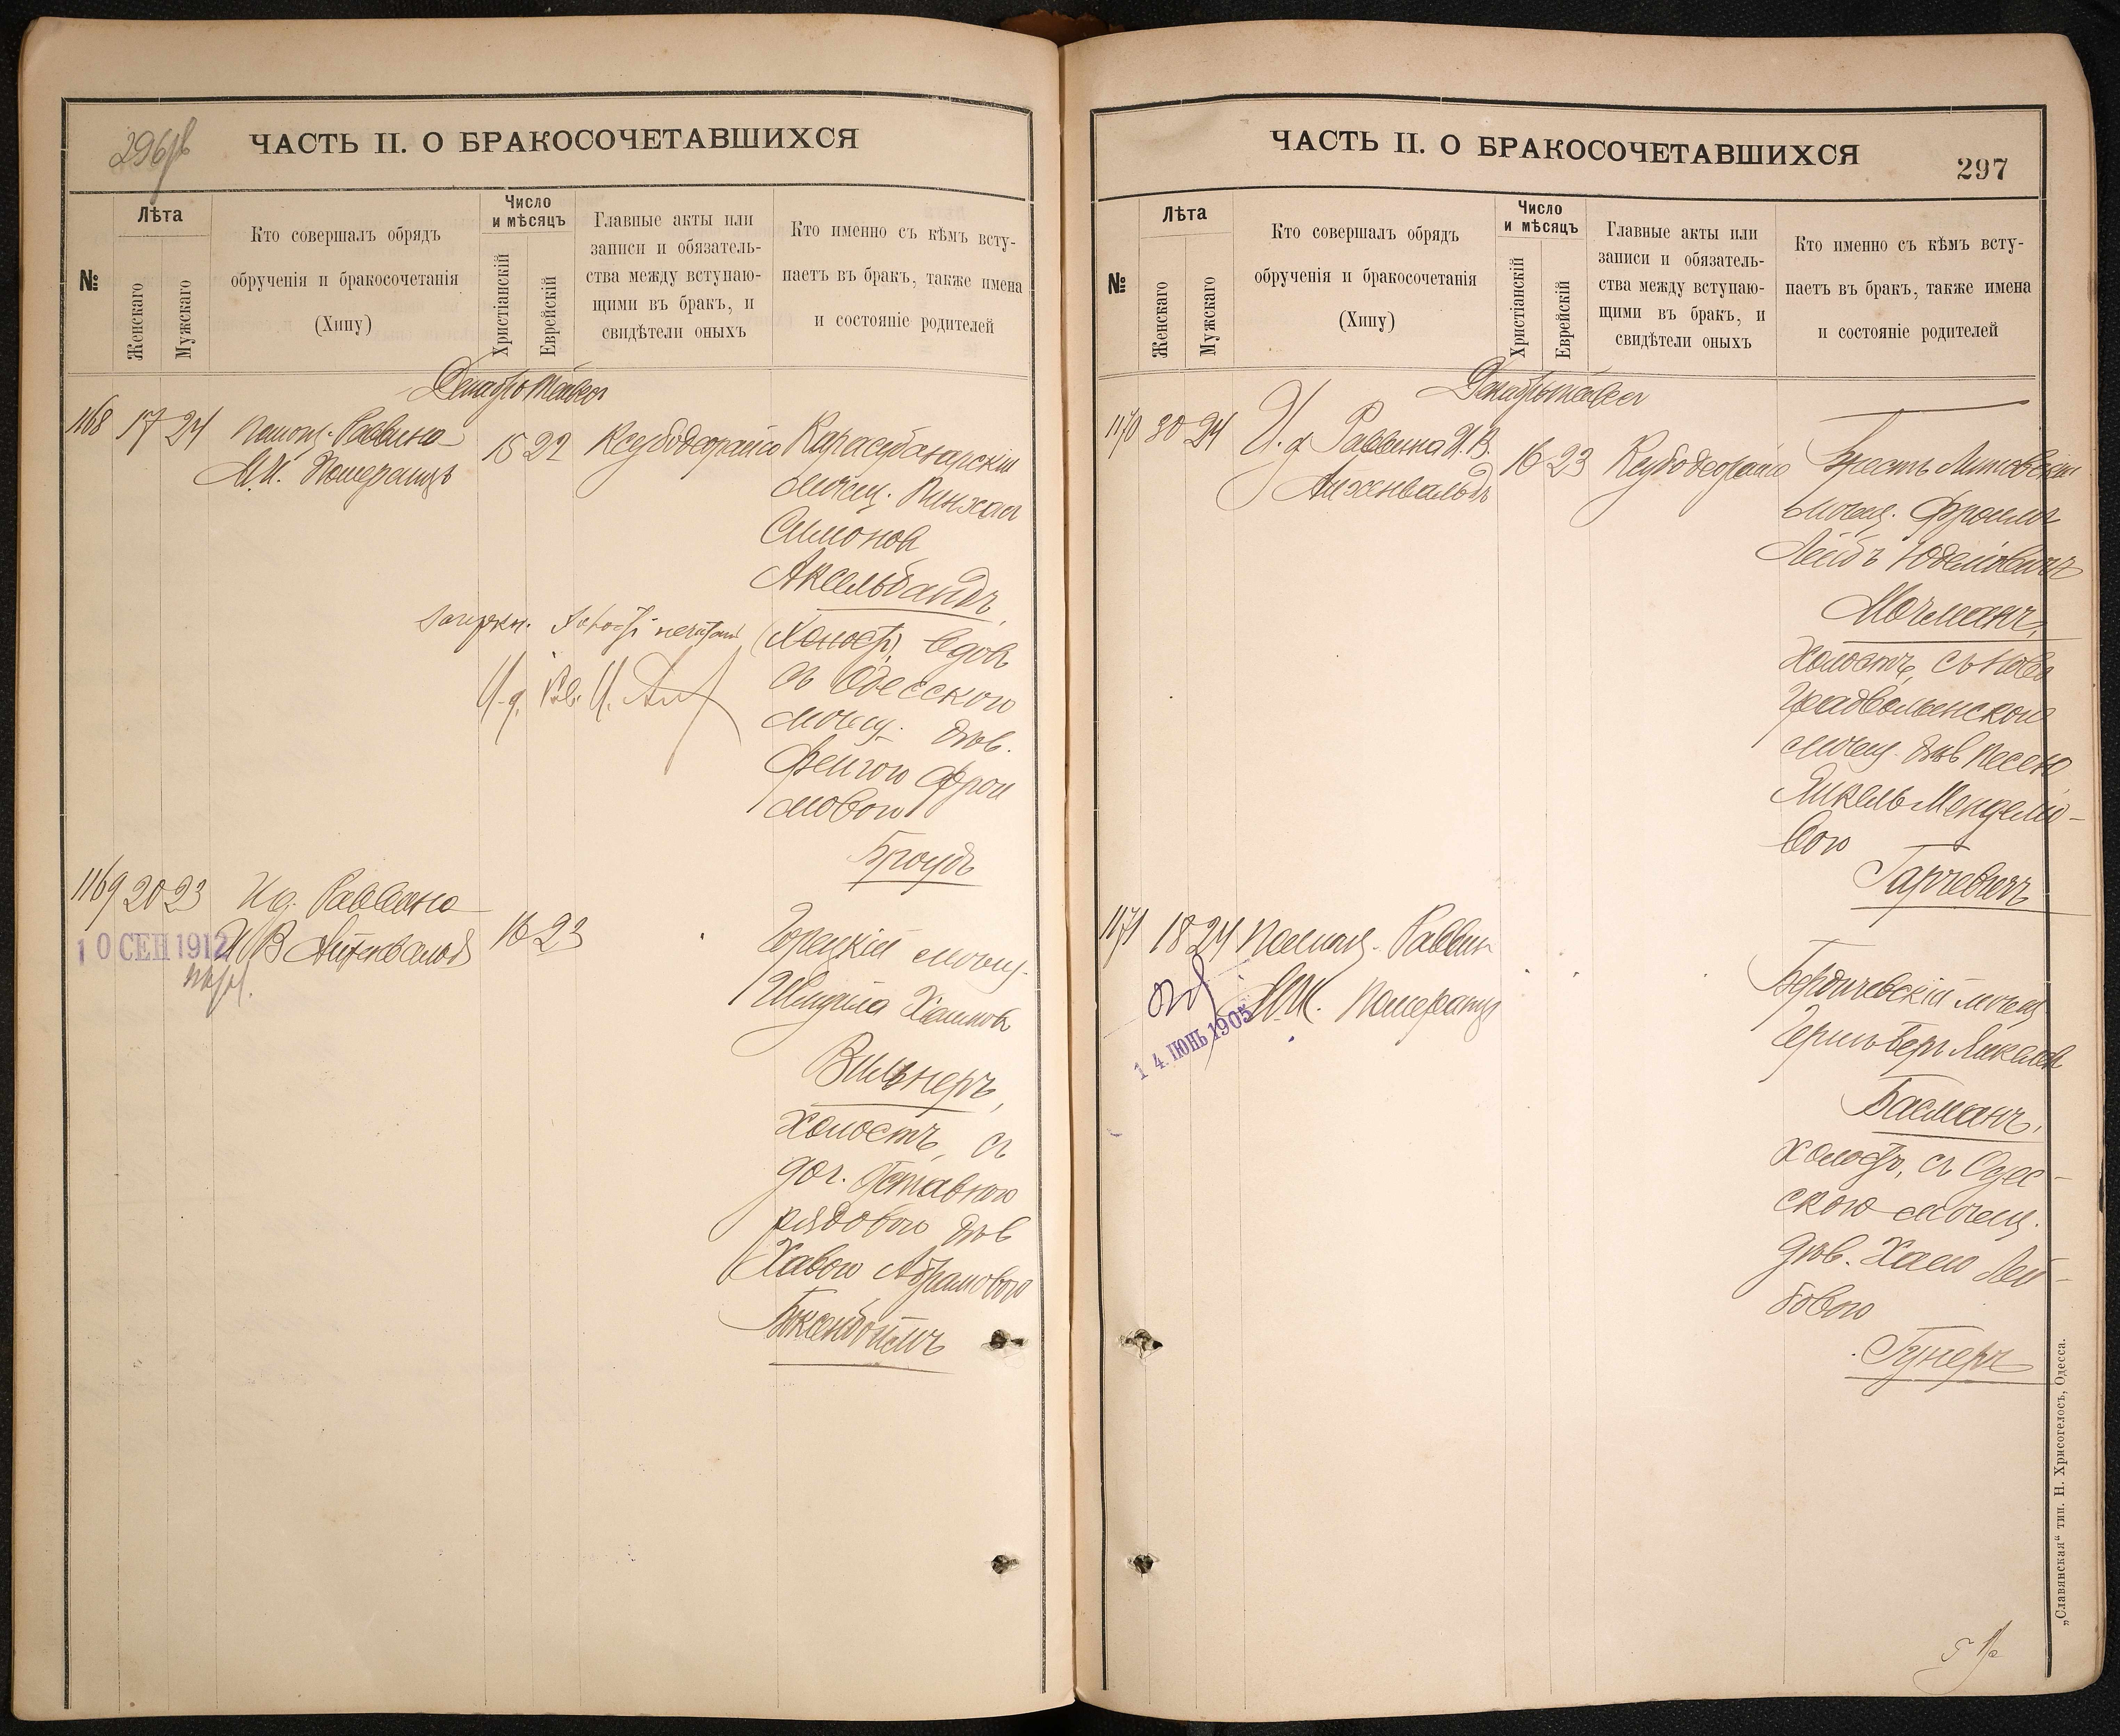 ЧАСТЬ II. О БРАКОСОЧЕТАВШИХСЯ
№
Лѣта
Женскаго
Мужскаго
Кто совершалъ обрядъ
обрученія и бракосочетанія
(Хипу)
Число
и мѣсяцъ
Христіанскій
Еврейскій
Главные акты или
записи и обязатель-
ства между вступаю-
щими въ бракъ, и
свидѣтели оныхъ
Кто именно съ кѣмъ всту-
паетъ въ бракъ, также имена
и состояніе родителей
Декабрь Тейвес
1168 17 24
Помощ. Раввина
М.И. Померанцъ
15 22
Ксубодеорайсо
Карасубазарскій
мѣщ. Пинхас
Симонов
Аксельбандъ,
(Холостъ), вдов
съ Одесского
мѣщ. дѣв.
Фейгою Фрои
мовою
Броудъ
1169 20 23
И.д. Раввина
И В Айхенвальдъ
10 СЕН 1912
16 23
Горецкій мѣщ.
Хаимов
Вильнеръ,
холостъ, съ
доч. Отставного
рядового дѣв
Хавою Абрамовою
ЧАСТЬ II. О БРАКОСОЧЕТАВШИХСЯ
297
№
Лѣта
Женскаго
Мужскаго
Кто совершалъ обрядъ
обрученія и бракосочетанія
(Хипу)
Число
и мѣсяцъ
Христіанскій
Еврейскій
Главные акты или
записи и обязатель-
ства между вступаю-
щими въ бракъ, и
свидѣтели оныхъ
Кто именно съ кѣмъ всту-
паетъ въ бракъ, также имена
и состояніе родителей
Декабрь Тейвес
1170 24
И. д Раввина И.В.
Айхенвальдъ
16 23
Ксубодеорайсо
Брестъ Литовскій
мѣщ. Фроимъ
Лейбъ Юделіовичъ
Мочманъ,
Холостъ, съ Ново
градволынскою
мѣщ. дѣв Песею
Янкель Менделіо-
вою
1171 18 24
Помощ. Раввин
М.И. Померанцъ
14 ІЮНЬ 1905
Бердичевскій мѣщ
Герш Беръ Янкелев
Басманъ,
холостъ, съ Одес-
скою мѣщ.
дѣв. Хаею Лей-
бовою
Гунеръ
„Славянская“ тип. Н. Хрисогелосъ, Одесса.